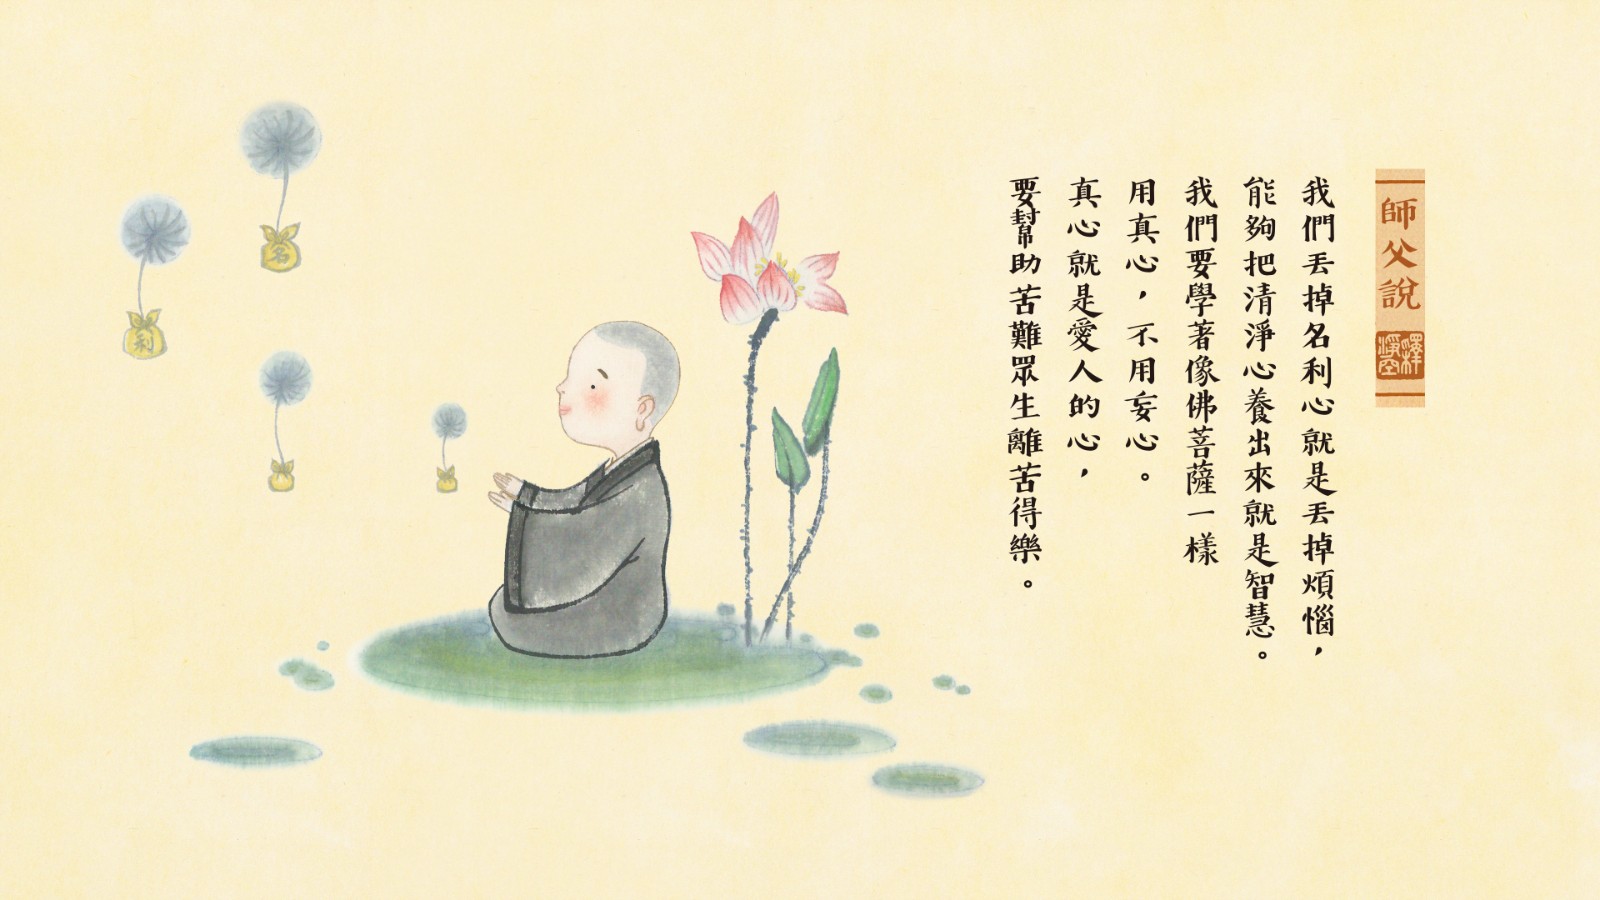 師父說
釋淨空
我們丟掉名利心就是丟掉煩惱，
能夠把清淨心養出來就是智慧。
我們要學著像佛菩薩一樣
用真心，不用妄心。
真心就是愛人的心，
要幫助苦難眾生離苦得樂。
名
利